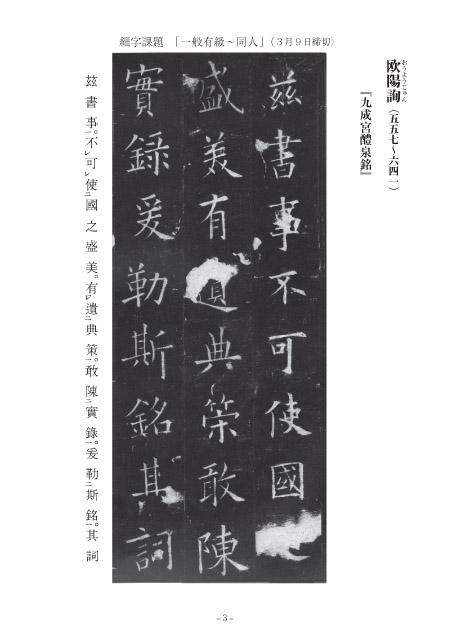 細字課題　「一般有級～同人」（３月９日締切）
欧陽詢（五五七～六四一）
おうようじゅん
『九成宮醴泉銘』
茲書事不可使國
盛美有遺典策敢陳
實録爰勒斯銘其詞
茲書事。不㆑可㆑使㆘國之盛美。有㆑遺㆗典策㆖。敢陳㆓實錄㆒。爰勒㆓斯銘㆒。其詞
－3－